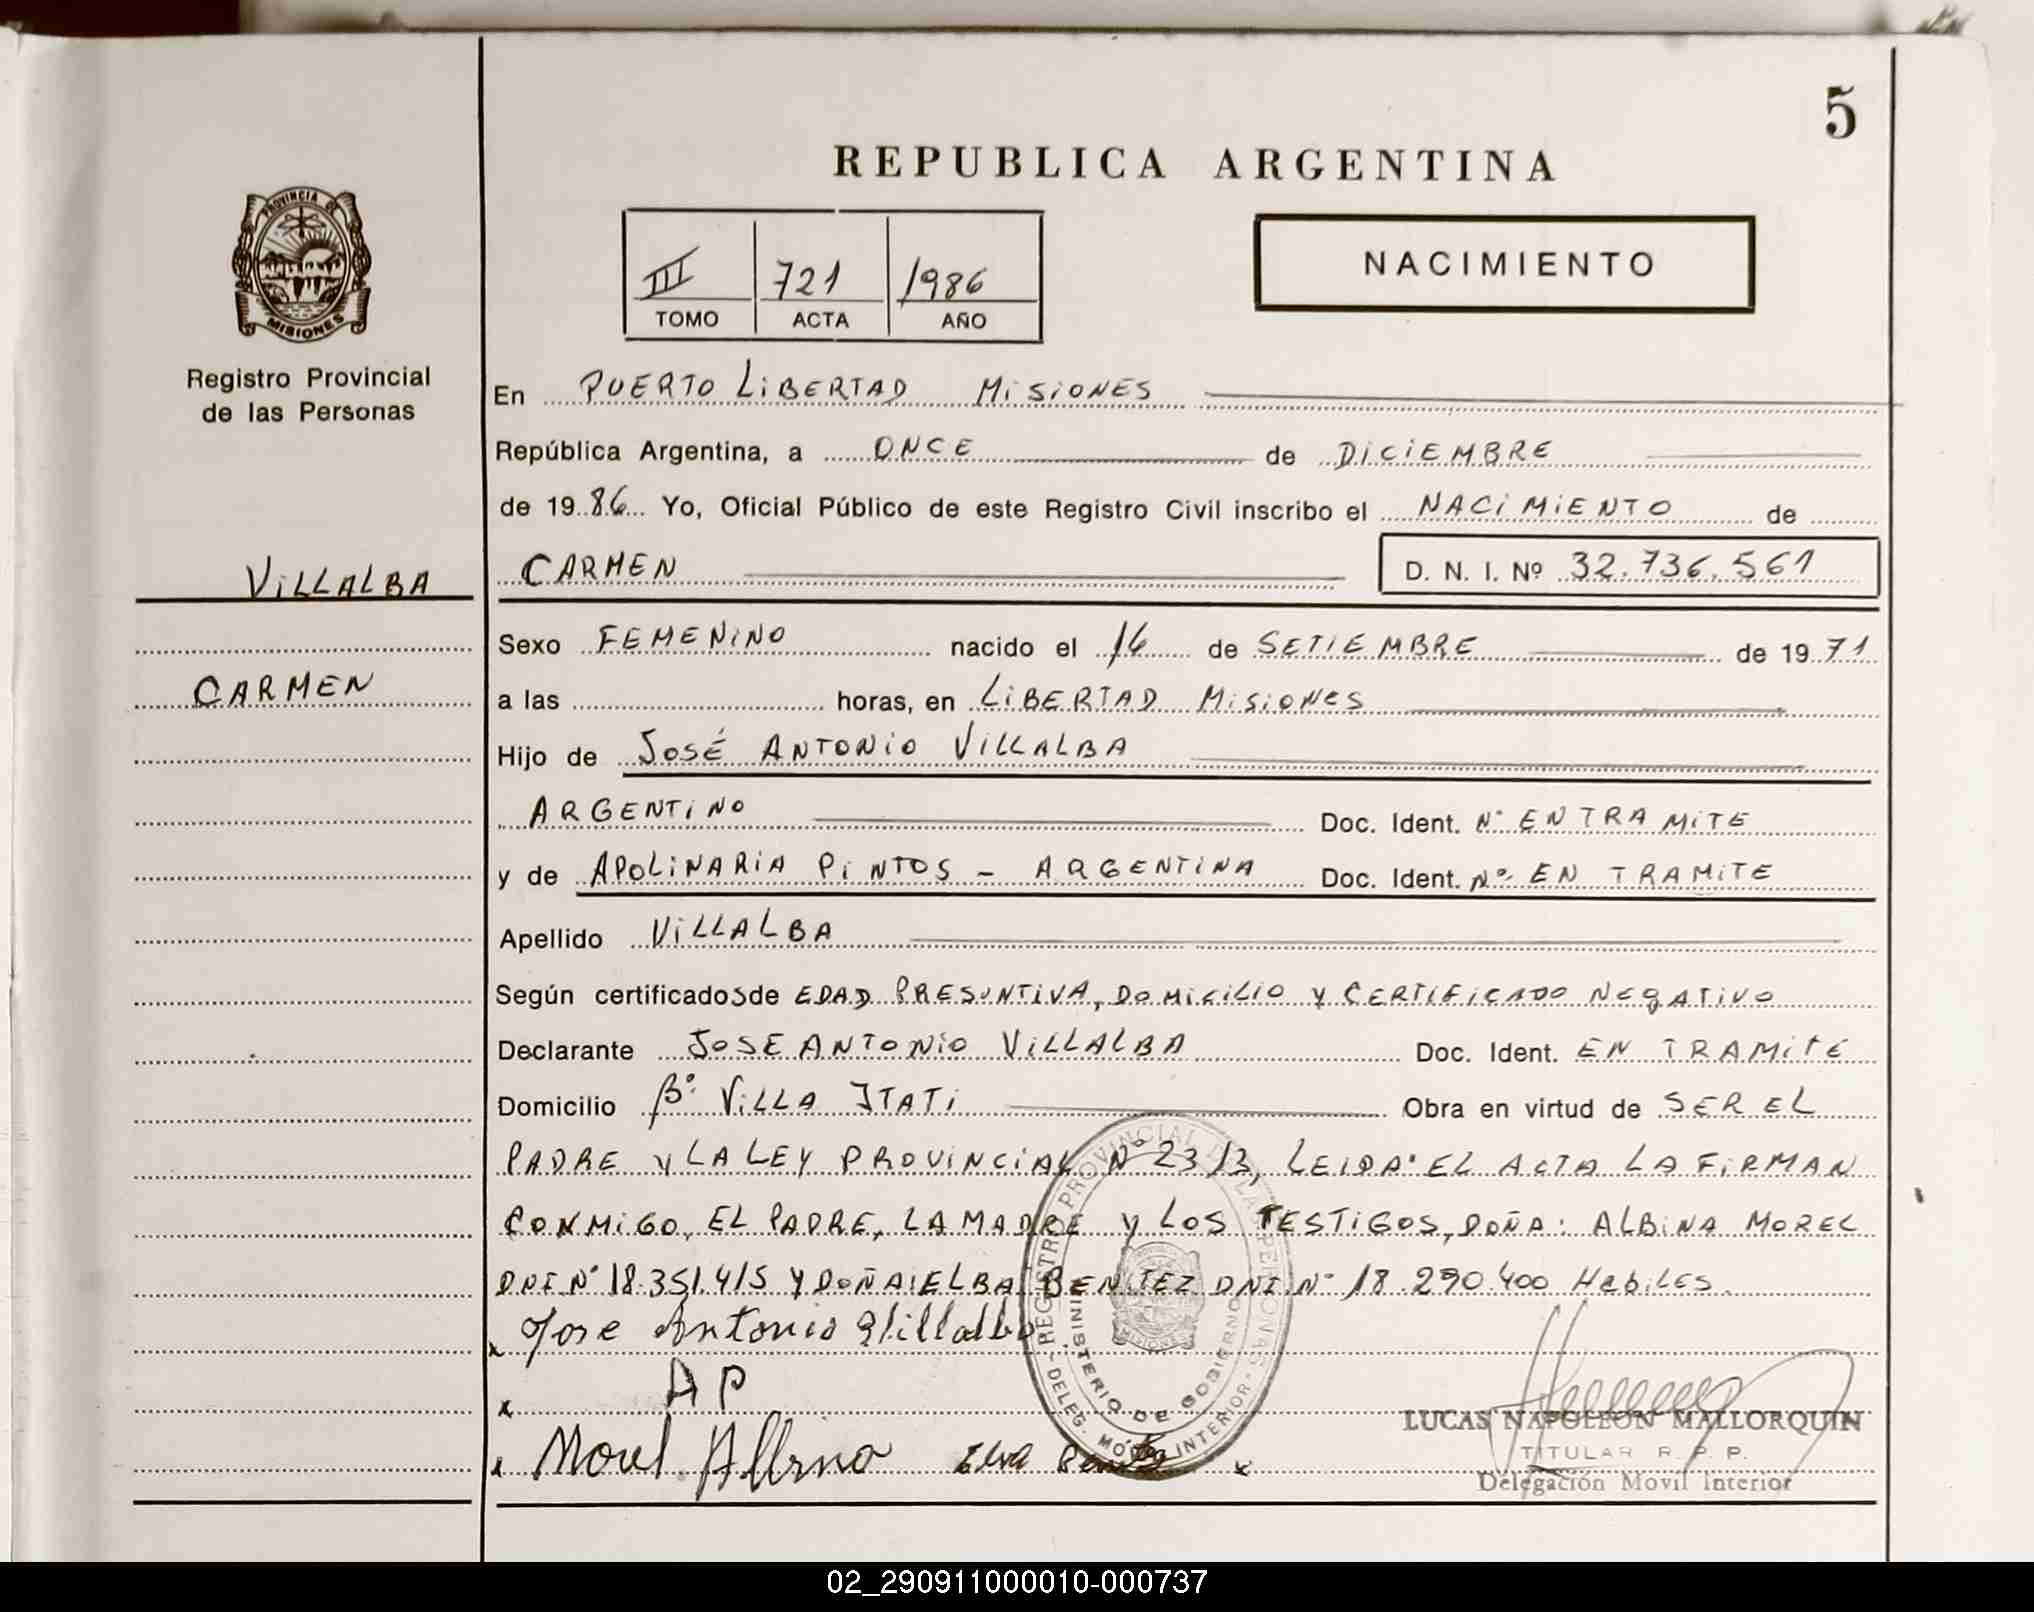 5
REPUBLICA ARGENTINA
PROVINCIA DE
MISIONES
III 721 1986
TOMO ACTA AÑO
NACIMIENTO
Registro Provincial
de las Personas
En PUERTO LIBERTAD MISIONES
República Argentina, a ONCE de DICIEMBRE
de 1986 Yo, Oficial Público de este Registro Civil inscribo el NACIMIENTO de
VILLALBA
CARMEN D. N. I. Nº 32.736.561
Sexo FEMENINO nacido el 16 de SETIEMBRE de 1971
CARMEN
a las horas, en LIBERTAD MISIONES
Hijo de JOSÉ ANTONIO VILLALBA
ARGENTINO Doc. Ident. Nº EN TRAMITE
y de APOLINARIA PINTOS - ARGENTINA Doc. Ident. Nº EN TRAMITE
Apellido VILLALBA
Según certificadosde EDAD PRESUNTIVA, DOMICILIO Y CERTIFICADO NEGATIVO
Declarante JOSE ANTONIO VILLALBA Doc. Ident. EN TRAMITE
Domicilio Bº VILLA ITATI Obra en virtud de SER EL
PADRE Y LA LEY PROVINCIAL Nº 2313, LEIDA EL ACTA LA FIRMAN
CONMIGO, EL PADRE, LA MADRE Y LOS TESTIGOS, DOÑA: ALBINA MOREL
DNI Nº 18.351.415 Y DOÑA: ELBA BENITEZ DNI Nº 18.290.400 HABILES.
x Jose Antonio Villalba
x AP
x Morel Albina Elva Benitez x
REGISTRO PROVINCIAL DE LAS PERSONAS
MINISTERIO DE GOBIERNO
DELEG. MOVIL INTERIOR
LUCAS NAPOLEON MALLORQUIN
TITULAR R. P. P.
Delegación Movil Interior
02_290911000010-000737